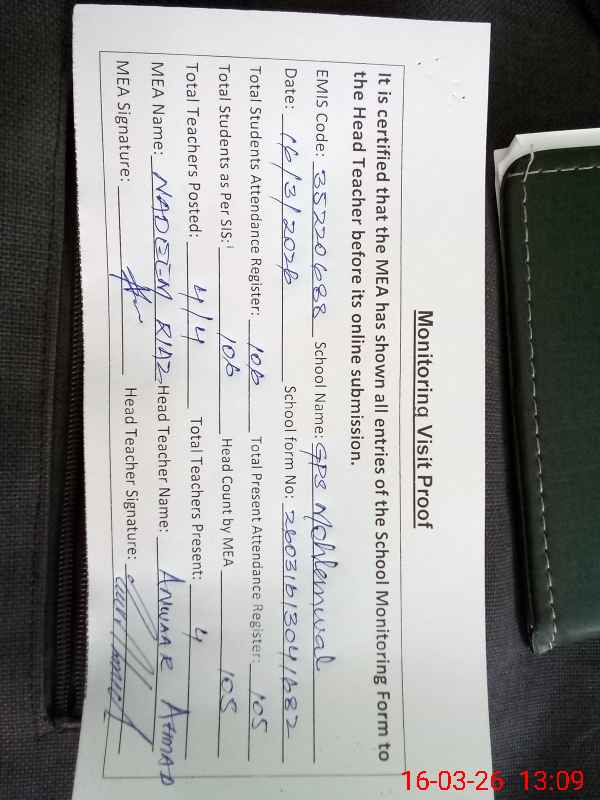 Monitoring Visit Proof
It is certified that the MEA has shown all entries of the School Monitoring Form to
the Head Teacher before its online submission.
EMIS Code: 35220688 School Name: GPS Mohlenwal
Date: 16/3/2026 School form No: 260316130411682
Total Students Attendance Register: 106 Total Present Attendance Register: 105
Total Students as Per SIS: 106 Head Count by MEA 105
Total Teachers Posted: 4/4 Total Teachers Present: 4
MEA Name: NADEEM RIAZ Head Teacher Name: ANWAAR AHMAD
MEA Signature: Head Teacher Signature:
16-03-26 13:09